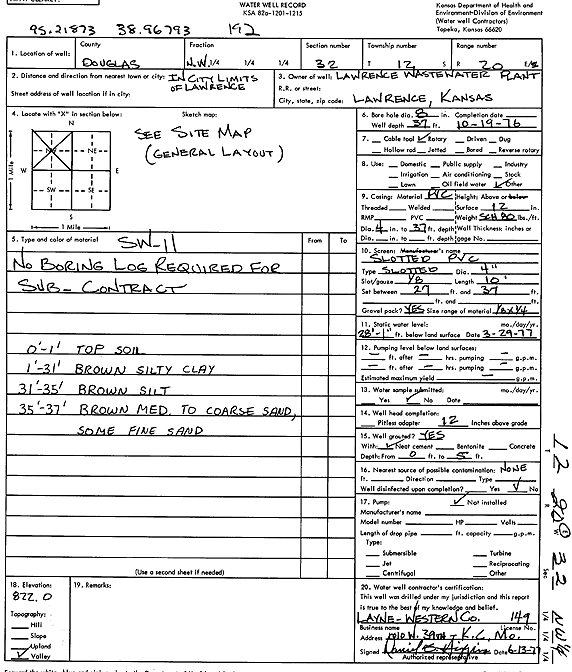 WATER WELL RECORD
KSA 82a-1201-1215
Kansas Department of Health and
Environment-Division of Environment
(Water well Contractors)
Topeka, Kansas 66620
95.21873 38.96793 192
1. Location of well: County DOUGLAS Fraction N.W. 1/4 1/4 1/4 Section number 32 Township number T 12 S Range number R 20 E/W
2. Distance and direction from nearest town or city: IN CITY LIMITS OF LAWRENCE
Street address of well location if in city:
3. Owner of well: LAWRENCE WASTEWATER PLANT
R.R. or street:
City, state, zip code: LAWRENCE, KANSAS
4. Locate with "X" in section below: Sketch map:
N
NW NE
W E
SW SE
S
1 Mile
1 Mile
SEE SITE MAP
(GENERAL LAYOUT)
6. Bore hole dia. 8 in. Completion date
Well depth 37 ft. 10-19-76
7. Cable tool ✓ Rotary Driven Dug
Hollow rod Jetted Bored Reverse rotary
8. Use: Domestic Public supply Industry
Irrigation Air conditioning Stock
Lawn Oil field water ✓ Other
9. Casing: Material PVC Height: Above or below
Threaded Welded Surface 12 in.
RMP PVC Weight SCH 80 lbs./ft.
Dia. 4 in. to 37 ft. depth Wall Thickness: inches or
Dia. in. to ft. depth gage No.
5. Type and color of material From To
SW-11
NO BORING LOG REQUIRED FOR
SUB-CONTRACT
0'-1' TOP SOIL
1'-31' BROWN SILTY CLAY
31'-35' BROWN SILT
35'-37' BROWN MED. TO COARSE SAND,
SOME FINE SAND
(Use a second sheet if needed)
10. Screen: Manufacturer's name
SLOTTED PVC
Type SLOTTED Dia. 4"
Slot/gauze 1/8 Length 10'
Set between 27 ft. and 37 ft.
ft. and ft.
Gravel pack? YES Size range of material 1/8 x 1/4
11. Static water level: mo./day/yr.
28'-1" ft. below land surface Date 3-29-77
12. Pumping level below land surface:
ft. after hrs. pumping g.p.m.
ft. after hrs. pumping g.p.m.
Estimated maximum yield g.p.m.
13. Water sample submitted: mo./day/yr.
Yes ✓ No Date
14. Well head completion:
Pitless adapter 12 Inches above grade
15. Well grouted? YES
With: ✓ Neat cement Bentonite Concrete
Depth: From 0 ft. to 5 ft.
16. Nearest source of possible contamination: NONE
ft. Direction Type
Well disinfected upon completion? Yes ✓ No
17. Pump: ✓ Not installed
Manufacturer's name
Model number HP Volts
Length of drop pipe ft. capacity g.p.m.
Type:
Submersible Turbine
Jet Reciprocating
Centrifugal Other
18. Elevation:
822.0
Topography:
Hill
Slope
Upland
✓ Valley
19. Remarks:
20. Water well contractor's certification:
This well was drilled under my jurisdiction and this report
is true to the best of my knowledge and belief.
LAYNE-WESTERN CO. 149
Business name License No.
Address 1010 W. 39TH - K.C., MO.
Signed Date 6-13-77
Authorized representative
T 12 R 20 E W Sec 32 NW 1/4 1/4 1/4